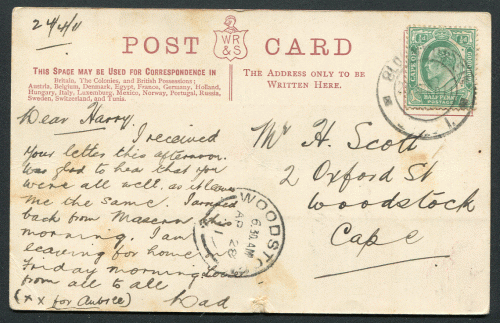 24/4/11
POST CARD
WR
& S
THIS SPACE MAY BE USED FOR CORRESPONDENCE IN
Britain, The Colonies, and British Possessions;
Austria, Belgium, Denmark, Egypt, France, Germany, Holland,
Hungary, Italy, Luxemburg, Mexico, Norway, Portugal, Russia,
Sweden, Switzerland, and Tunis.
THE ADDRESS ONLY TO BE
WRITTEN HERE.
Dear Harry.
I received
your letter this afternoon.
Was glad to hear that you
were all well, as it leaves
me the same. I arrived
back from Maseru this
morning. I am
leaving for home
Friday morning love
from all to all
(x x for Aubrey)
Dad
Mr H. Scott
2 Oxford St
Woodstock
Cape
WOODSTO
6.30 AM
AP 28
11
BLO
CAPE OF GOOD HOPE
HALF PENNY
POSTAGE